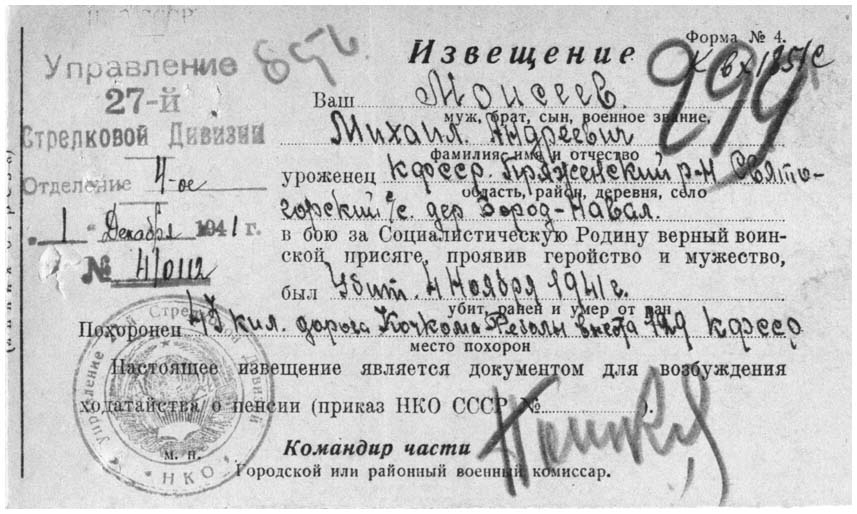 Форма № 4.
Извещение
Управление
27-й
Стрелковой Дивизии
Отделение 4-ое
"1" Декабря 1941 г.
№ 4/0112
299
Ваш Моисеев.
муж, брат, сын, военное звание,
Михаил Андреевич
фамилия, имя и отчество
уроженец КФССР. Пряженский р-н Свято-
область, район, деревня, село
горский с/с. дер
в бою за Социалистическую Родину верный воин-
ской присяге, проявив геройство и мужество,
был Убит. 4 Ноября 1941 г.
убит, ранен и умер от ран
Похоронен 43 кил. дорога Кочкома Реболы КФССР
место похорон
Настоящее извещение является документом для возбуждения
ходатайства о пенсии (приказ НКО СССР № ).
Командир части
м. п.
Городской или районный военный комиссар.
Управление Стрелковой Дивизии
НКО